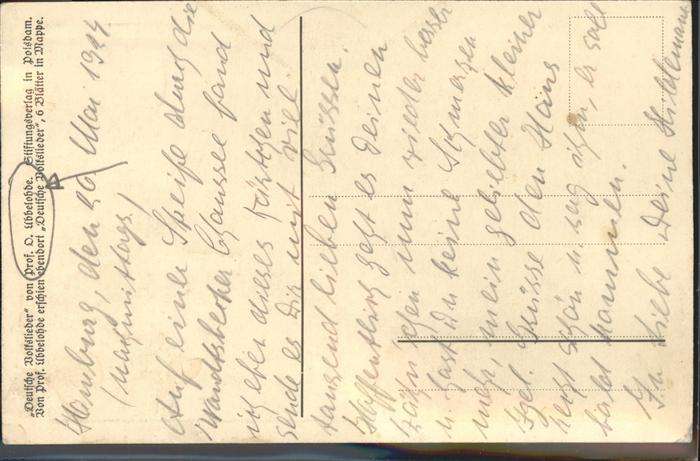 „Deutsche Volkslieder“ von Prof. O. Ubbelohde. Stiftungsverlag in Potsdam.
Von Prof. Ubbelohde erschien ebendort „Deutsche Volkslieder“, 6 Blätter in Mappe.
Hamburg, den 20. Mai 1924
nachmittags.
Auf einer Streife durch die
Wandsbecker Chaussee fand
ich eben dieses Kärtchen und
sende es Dir mit viel
tausend lieben Grüssen.
Hoffentlich geht es Deinen
Zähnchen nun wieder besser
u. hast Du keine Schmerzen
mehr, mein geliebter kleiner
Igel. Grüsse den Hans
herzl. schön u. sag ihm, er soll
bald kommen.
In Liebe Deine